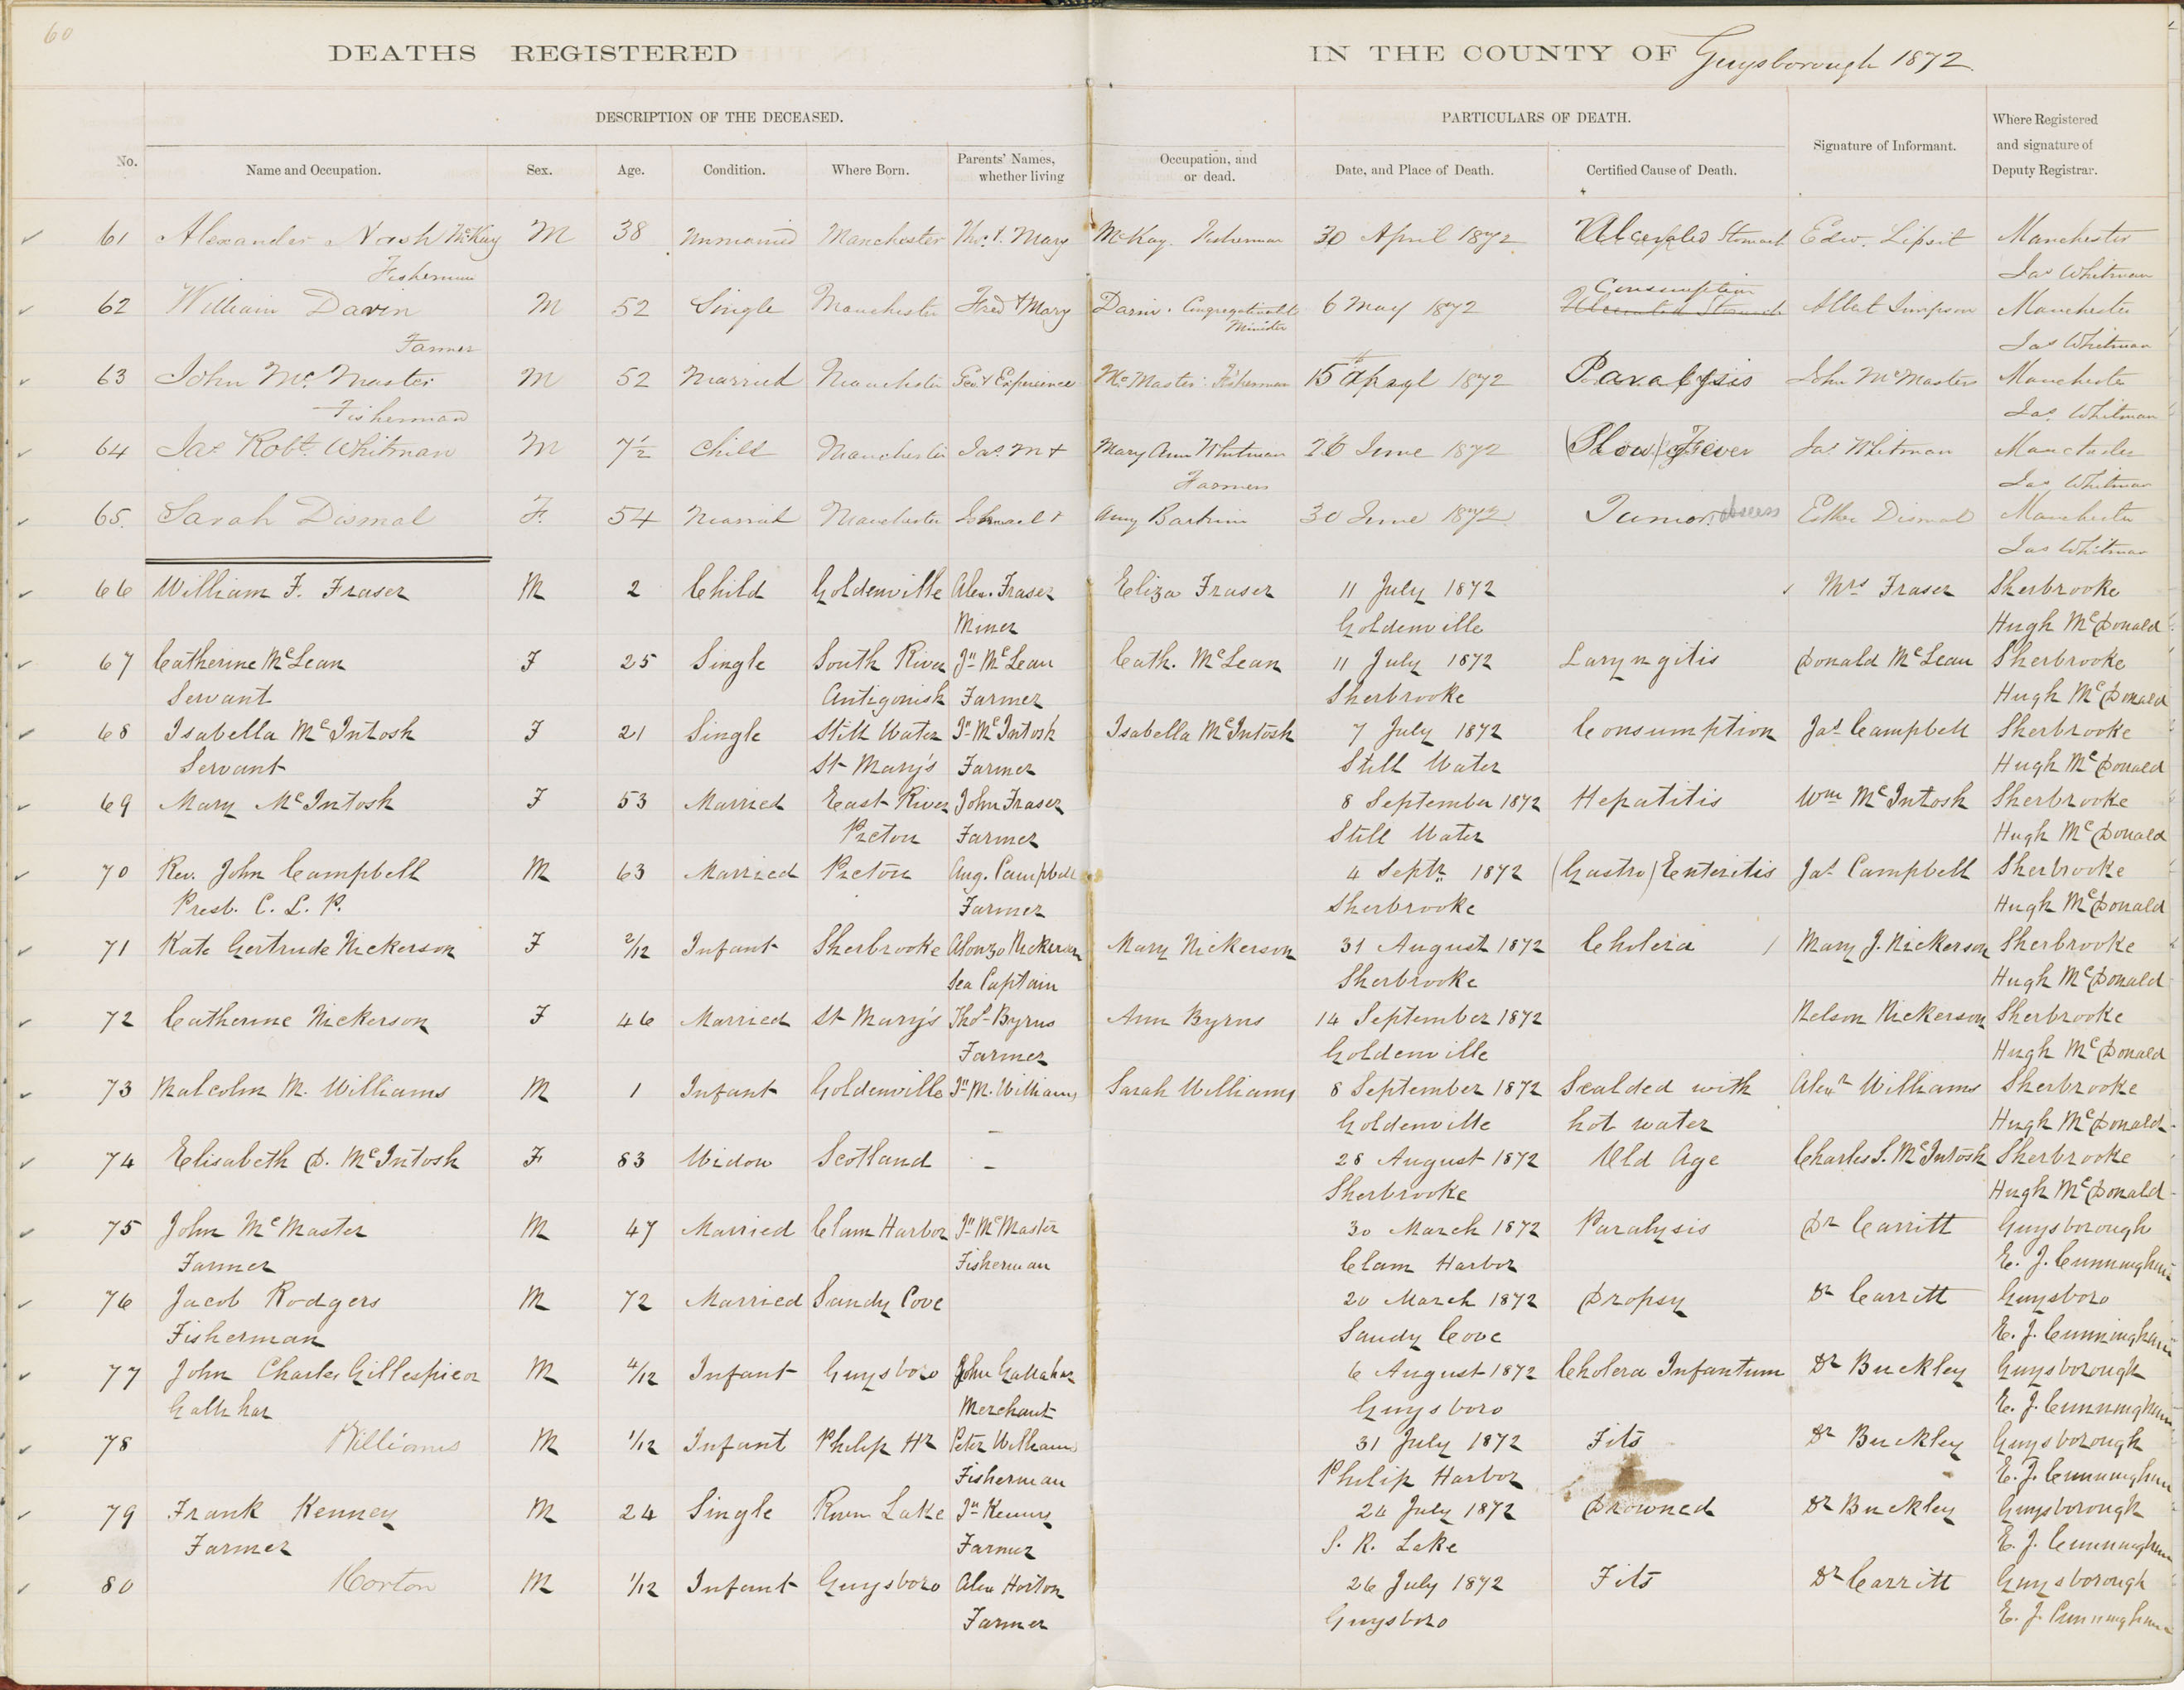 60
DEATHS REGISTERED IN THE COUNTY OF Guysborough 1872.
DESCRIPTION OF THE DECEASED. PARTICULARS OF DEATH. Signature of Informant. Where Registered and signature of Deputy Registrar.
No. Name and Occupation. Sex. Age. Condition. Where Born. Parents' Names, whether living Occupation, and or dead. Date, and Place of Death. Certified Cause of Death.
61 Alexander Nash McKay M 38 Unmarried Manchester Thos. & Mary McKay. Fisherman 30 April 1872 Ulcerated Stomach Edw. Lipsit Manchester
Fisherman Jas Whitman
62 William Davin M 52 Single Manchester Fred & Mary Davin. Congregationalist Minister 6 May 1872 Consumption Ulcerated Stomach Albert Simpson Manchester
Farmer Jas Whitman
63 John Mc Master M 52 Married Manchester Geo & Experience McMaster. Fisherman 15 1872 Paralysis John McMasters Manchester
Fisherman Jas. Whitman
64 Jas Robt. Whitman M 7½ Child Manchester Jas. M & Mary Ann Whitman 26 June 1872 (Slow) Fever Jas. Whitman Manchester
Farmer Jas Whitman
65. Sarah Dismal F. 54 Married Manchester Ishmael & Amy 30 June 1872 Tumor, abscess Esther Dismal Manchester
Jas Whitman
66 William F. Fraser M 2 Child Goldenville Alex. Fraser Eliza Fraser 11 July 1872 Mrs Fraser Sherbrooke
Miner Goldenville Hugh McDonald
67 Catherine McLean F 25 Single South River Jn McLean Cath. McLean 11 July 1872 Laryngitis Donald McLean Sherbrooke
Servant Antigonish Farmer Sherbrooke Hugh McDonald
68 Isabella McIntosh F 21 Single Still Water Jn McIntosh Isabella McIntosh 7 July 1872 Consumption Jas Campbell Sherbrooke
Servant St Mary's Farmer Still Water Hugh McDonald
69 Mary McIntosh F 53 Married East River John Fraser 8 September 1872 Hepatitis Wm McIntosh Sherbrooke
Picton Farmer Still Water Hugh McDonald
70 Rev. John Campbell M 63 Married Picton Aug. Campbell 4 Septr. 1872 (Gastro) Enteritis Jas Campbell Sherbrooke
Presb. C. L. P. Farmer Sherbrooke Hugh McDonald
71 Kate Gertrude Nickerson F 2/12 Infant Sherbrooke Alonzo Nickerson Mary Nickerson 31 August 1872 Cholera Mary J. Nickerson Sherbrooke
Sea Captain Sherbrooke Hugh McDonald
72 Catherine Nickerson F 46 Married St Mary's Thos Byrns Ann Byrns 14 September 1872 Nelson Nickerson Sherbrooke
Farmer Goldenville Hugh McDonald
73 Malcolm M. Williams M 1 Infant Goldenville Jn M. Williams Sarah Williams 8 September 1872 Scalded with Alexr Williams Sherbrooke
Goldenville hot water Hugh McDonald
74 Elisabeth D. McIntosh F 83 Widow Scotland 28 August 1872 Old Age Charles S. McIntosh Sherbrooke
Sherbrooke Hugh McDonald
75 John McMaster M 47 Married Clam Harbor Jn McMaster 30 March 1872 Paralysis Dr Carritt Guysborough
Farmer Fisherman Clam Harbor E. J. Cunningham
76 Jacob Rodgers M 72 Married Sandy Cove 20 March 1872 Dropsy Dr Carritt Guysboro
Fisherman Sandy Cove E. J. Cunningham
77 John Charles Gillespie or M 4/12 Infant Guysboro John Gallahar 6 August 1872 Cholera Infantum Dr Buckley Guysborough
Gallhar Merchant Guysboro E. J. Cunningham
78 Williams M 1/12 Infant Philip Hr Peter Williams 31 July 1872 Fits Dr Buckley Guysborough
Fisherman Philip Harbor E. J. Cunningham
79 Frank Kenney M 24 Single Lake Jn Kenney 24 July 1872 Drowned Dr Buckley Guysborough
Farmer Farmer S. R. Lake E. J. Cunningham
80 Horton M 1/12 Infant Guysboro Alex Horton 26 July 1872 Fits Dr Carritt Guysborough
Farmer Guysboro E. J. Cunningham